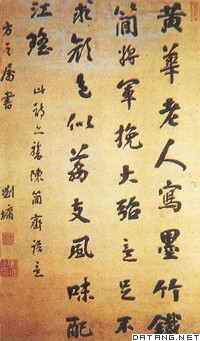 黃華老人寫墨竹鐵
簡將軍挽大弨意足不
求顏色似荔支風味配
江瑤
此詩陳簡齋語意
方之屬書
劉墉
DATANG.NET